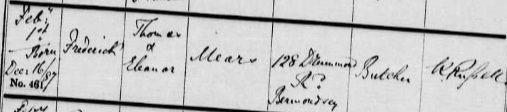 Feby
1st
Born
Decr 16/87
No. 461
Frederick
Thomas
&
Eleanor
Mears
128 Drummond
Rd
Bermondsey
Butcher